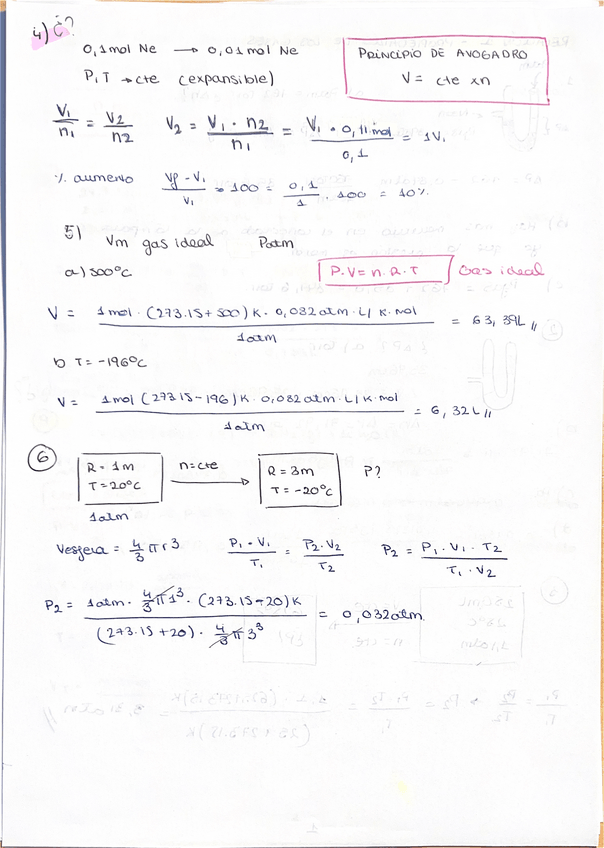 4) ¿?
0,1mol Ne → 0,01mol Ne
P,T → cte (expansible)
PRINCIPIO DE AVOGADRO
V = cte × n
V1/n1 = V2/n2 V2 = V1 · n2/n1 = V1 · 0,11mol/0,1 = 1V1
% aumento Vf - V1/V1 · 100 = 0,1/1 · 100 = 10%
5) Vm gas ideal Patm
a) 500ºC
P·V = n·R·T Gas ideal
V = 1mol · (273.15 + 500)K · 0,082 atm · L/K·mol / 1atm = 63,39L//
b T = -196ºC
V = 1mol (273.15 - 196)K · 0,082 atm · L/K·mol / 1atm = 6,32L//
6
R = 1m n=cte R = 3m P?
T = 20ºC → T = -20ºC
1atm
Vesfera = 4/3 π r³ P1 · V1/T1 = P2 · V2/T2 P2 = P1 · V1 · T2/T1 · V2
P2 = 1atm · 4/3 π 1³ · (273.15 - 20)K / (273.15 + 20) · 4/3 π 3³ = 0,032atm